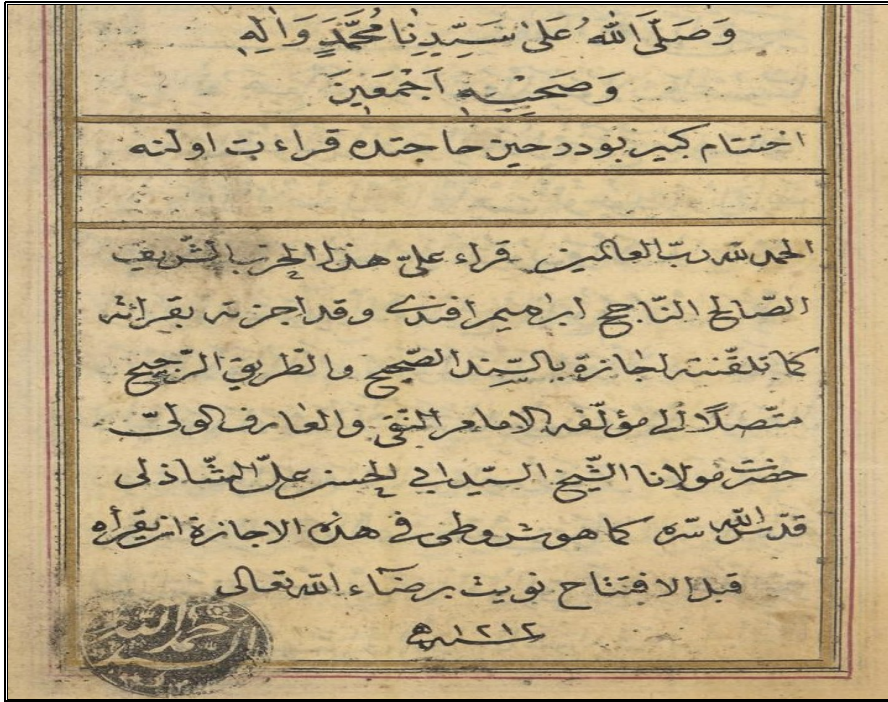 وَصَلَّى اللّٰهُ عَلٰى سَيِّدِنَا مُحَمَّدٍ وَاٰلِهٖ
وَصَحْبِهٖ اَجْمَعِينَ
اختتام كبير بودر حين حاجتده قراءت اولنه
الحمد لله ربّ العالمين قراء علىّ هذا الحزب الشّريف
الصّالح النّاجح ابراهيم افندى وقد اجزته بقرائته
كما تلقّنته اجازة بالسّند الصّحيح والطّريق الرّجيح
متّصلاً الى مؤلّفه الامام التّقى والعارف الولىّ
حضرت مولانا الشّيخ السّيد ابى الحسن علىّ الشّاذلى
قدّس اللّه سّره كما هو شروطى فى هذه الاجازة ان يقرأه
قبل الافتتاح نويت برضاء اللّه تعالى
سنه ١٢١٢